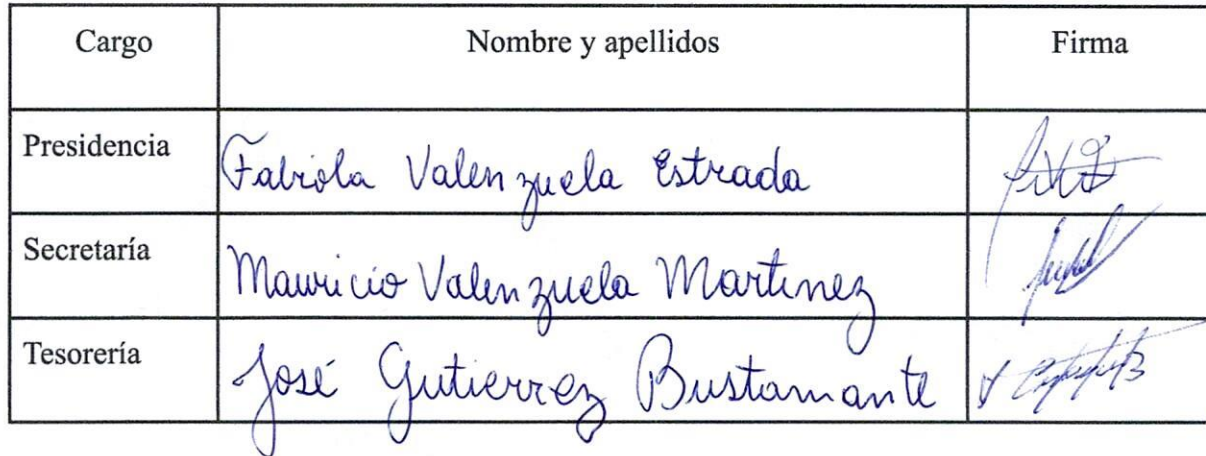 Cargo Nombre y apellidos Firma
Presidencia Fabiola Valenzuela Estrada
Secretaría Mauricio Valenzuela Martinez
Tesorería José Gutierrez Bustamante